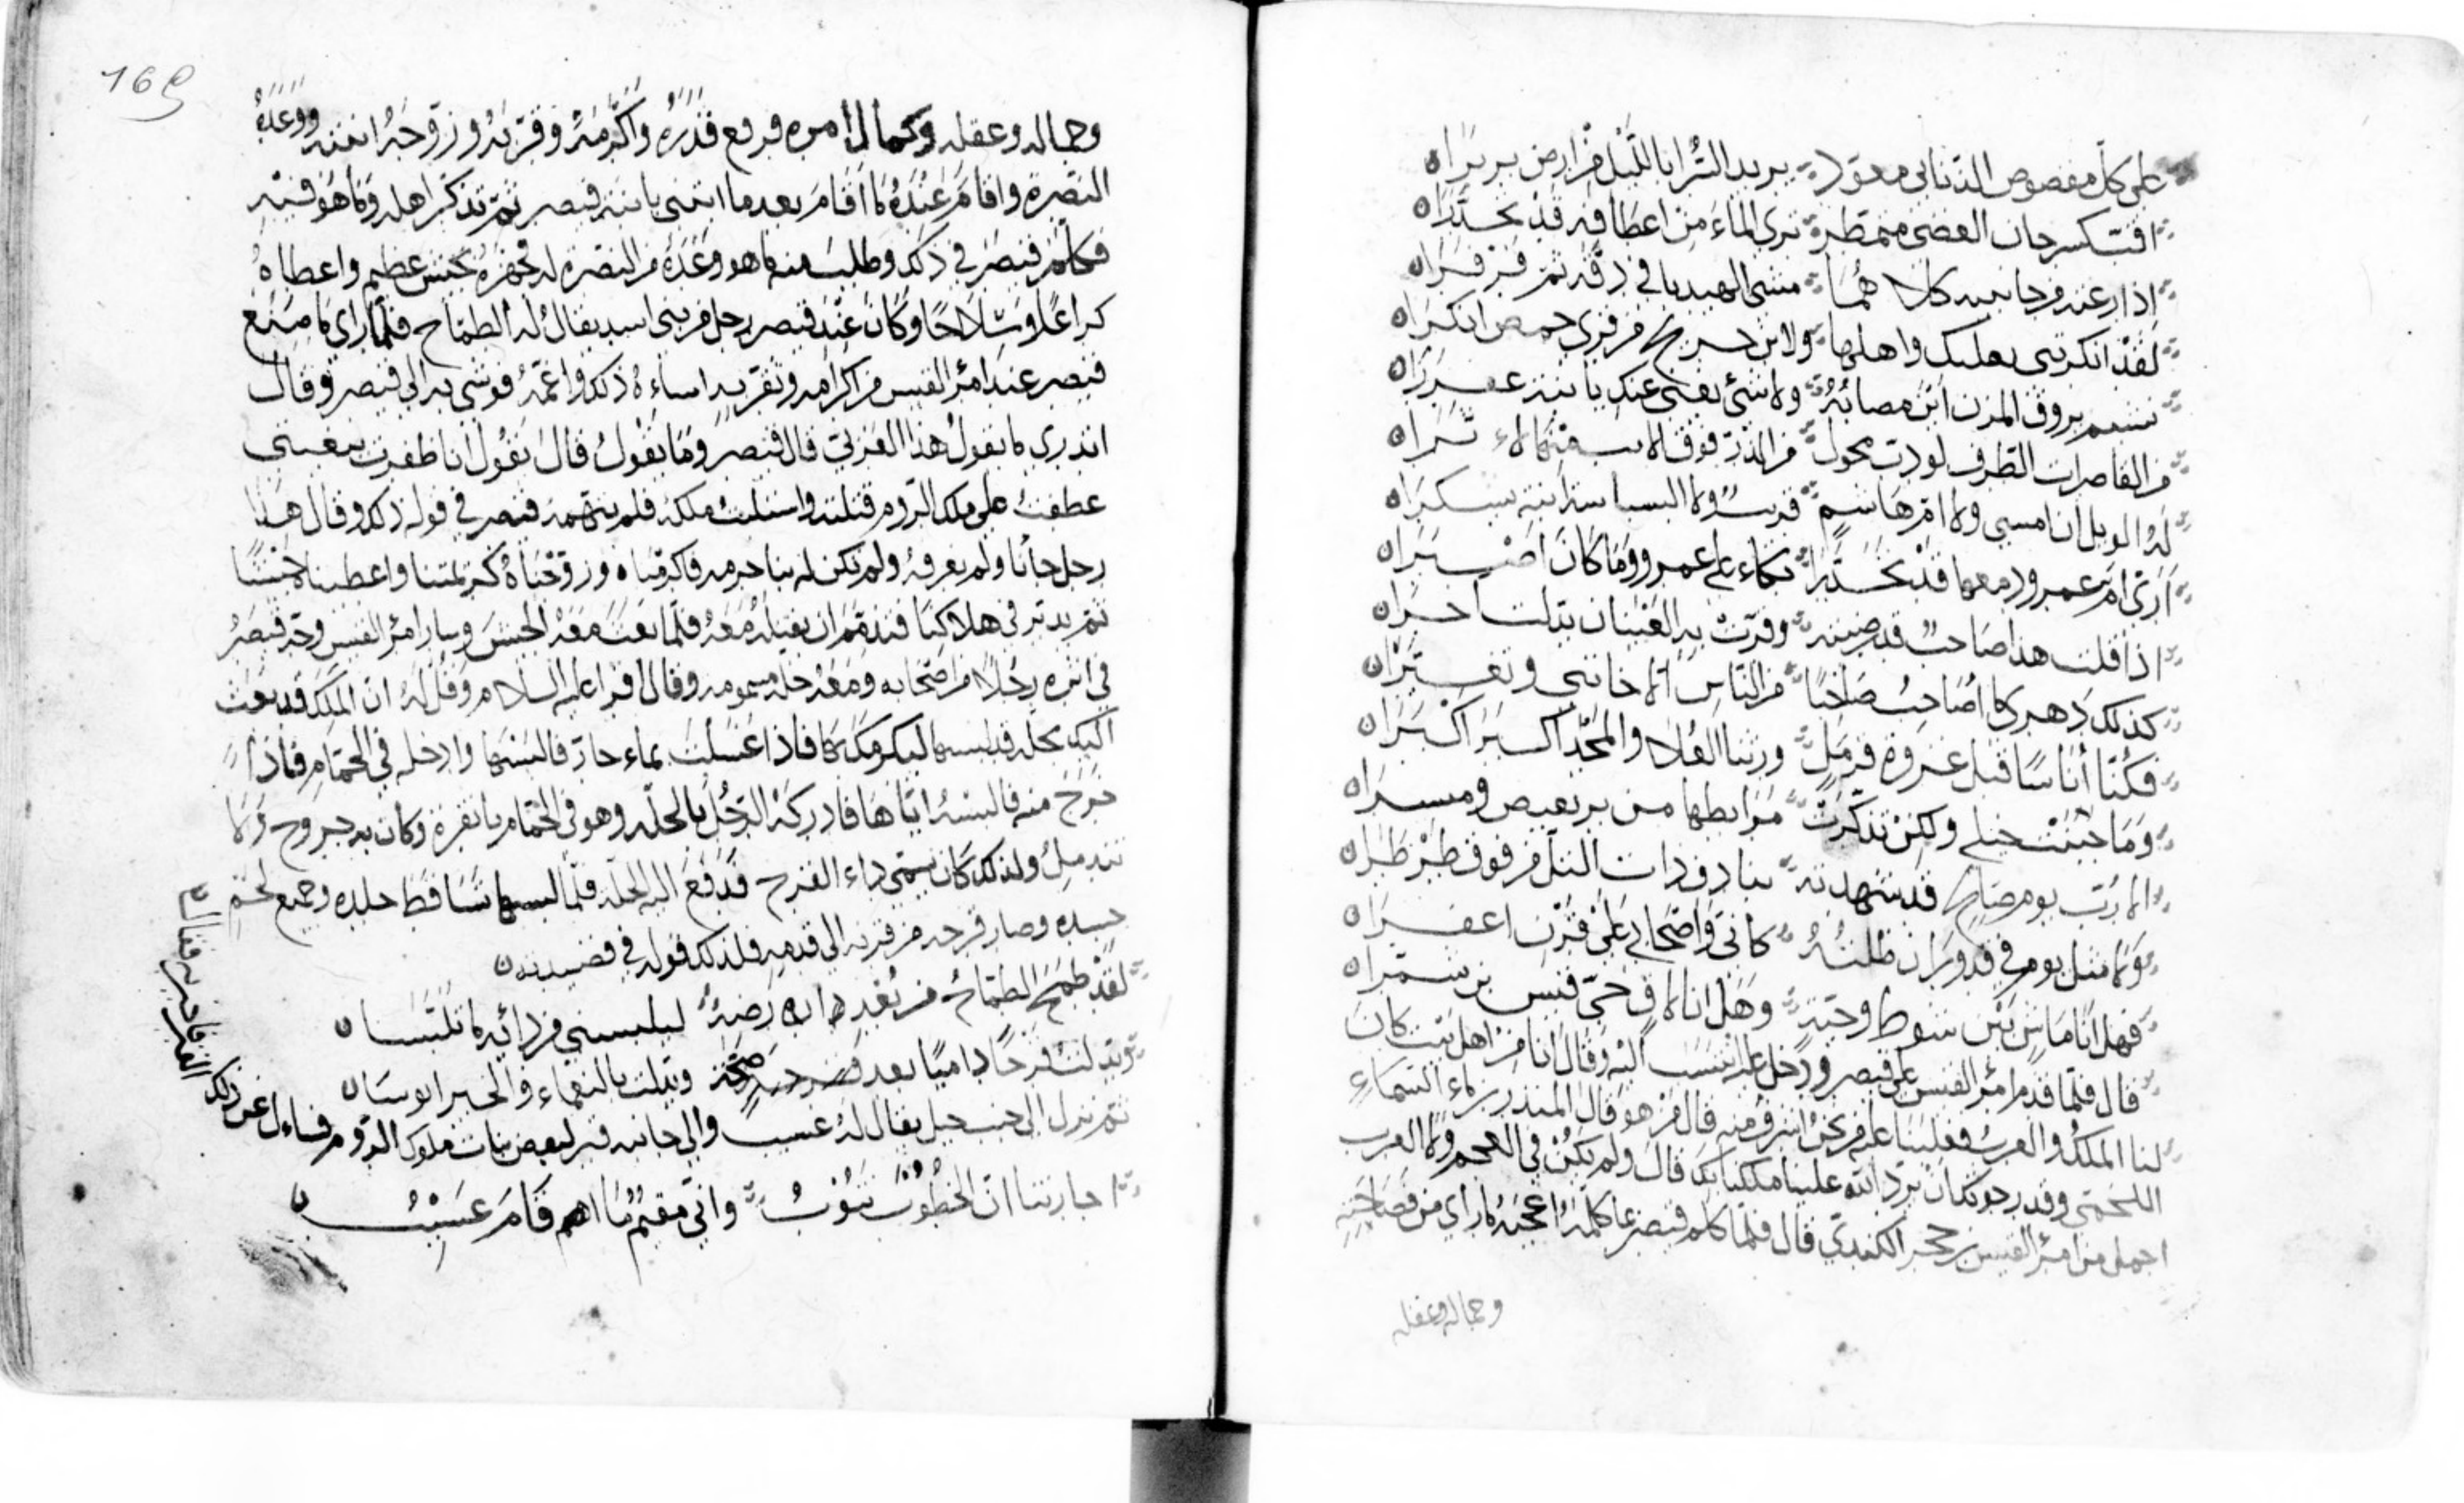 على كل مقصوص الذنابى معود بريد السرا بالليل من ارض بربرا
اقب كسرحان الغضى متمطر ترى الماء من اعطافه قد تحدرا
اذا رعته من جانبيه كلاهما مشى الهيدبا في دفه ثم فرفرا
لقد انكرتني بعلبك واهلها ولابن جريج من قرى حمص انكرا
نشيم بروق المزن اين مصابه ولا شيء يغني عنك يا ابنة عفزرا
من القاصرات الطرف لو دب محول من الذر فوق الاتب منها لاثرا
له الويل ان امسى ولا ام هاشم قريب ولا البسباسة ابنة يشكرا
ارى ام عمرو دمعها قد تحدرا بكاء على عمرو وما كان اصبرا
اذا قلت هذا صاحب قد رضيته وقرت به العينان بدلت اخرا
كذلك دهري ما اصاحب صاحبا من الناس الا خانني وتغيرا
فكنا اناسا قبل غزوة قرمل ورثنا العلا والمجد اكبر اكبرا
وما جبنت خيلي ولكن تذكرت مرابطها من بربعيص وميسرا
الا رب يوم صالح قد شهدته بتادف ذات التل من فوق طرطرا
ولا مثل يوم في قدوران ظلته كاني واصحابي على قرن اعفرا
فهل انا ماش بين شوط وحية وهل انا لاق حي قيس بن شمرا
قال فلما قدم امرؤ القيس على قيصر ودخل عليه انتسب اليه وقال انا من اهل بيت كان
لنا الملك والعرب فغلبنا عليه من نحن اشرف منه قال من هو قال المنذر بن ماء السماء
اللخمي وقد رجوتك ان يرد الله علينا ملكنا بك قال ولم يكن في العجم ولا العرب
اجمل من امرئ القيس بن حجر الكندي قال فلما كلم قيصر بما كلمه اعجبه ما راى من فصاحته
وجماله وعقله
169
وجماله وعقله وكمال امره فرفع قدره واكرمه وقربه وزوجه ابنته ووعده
النصرة واقام عنده ما اقام بعد ما ابتنى بابنة قيصر ثم تذكر اهله وما هو فيه
فكلم قيصر في ذلك وطلب منه ما هو وعده من النصرة له فجهزه بجيش عظيم واعطاه
كراعا وسلاحا وكان عند قيصر رجل من بني اسد يقال له الطماح فلما راى ما صنع
قيصر عند امرئ القيس من اكرامه وتقريبه اساءه ذلك واغمه فوشى به الى قيصر وقال
اتدري ما يقول هذا العربي قال قيصر وما يقول قال يقول انا ظفرت ببغيتي
عطفت على ملك الروم فقتلته واستلبت ملكه فلم يتهمه قيصر في قوله ذلك وقال هذا
رجل جانا ولم نعرفه ولم تكن له بنا حرمه فاكرمناه وزوجناه كريمتنا واعطيناه جيشا
ثم يدبر في هلاكنا فندم ان يقبله معه فلما بعث معه الجيش وسار امرؤ القيس وجه قيصر
في اثره رجلا من اصحابه ومعه حلة مسمومه وقال اقرا عليه السلام وقل له ان الملك قد بعث
اليك بحلة قد لبسها ليكرمك بها فاذا اغتسلت بماء حار فالبسها وادخله في الحمام فاذا
خرج منه فالبسه اياها فادركه الرجل بالحلة وهو في الحمام بانقرة وكان به جروح ولا
تندمل ولذلك كان يسمى داء القرح فدفع اليه الحلة فلما لبسها تساقط جلده وجميع لحم
جسده وصار قرحه من قرنه الى قدمه فلذلك قوله في قصيدته
لقد طمح الطماح من بعد ارضه ليلبسني من دائه ما تلبسا
وبدلت قرحا داميا بعد صحة وبدلت بالنعماء والخير ابوسا
ثم نزل الى جنب جبل يقال له عسيب والى جانبه قبر لبعض بنات ملوك الروم فساءل عن ذلك
القبر فاخبر به فقال
اجارتنا ان الخطوب تنوب واني مقيم ما اقام عسيب